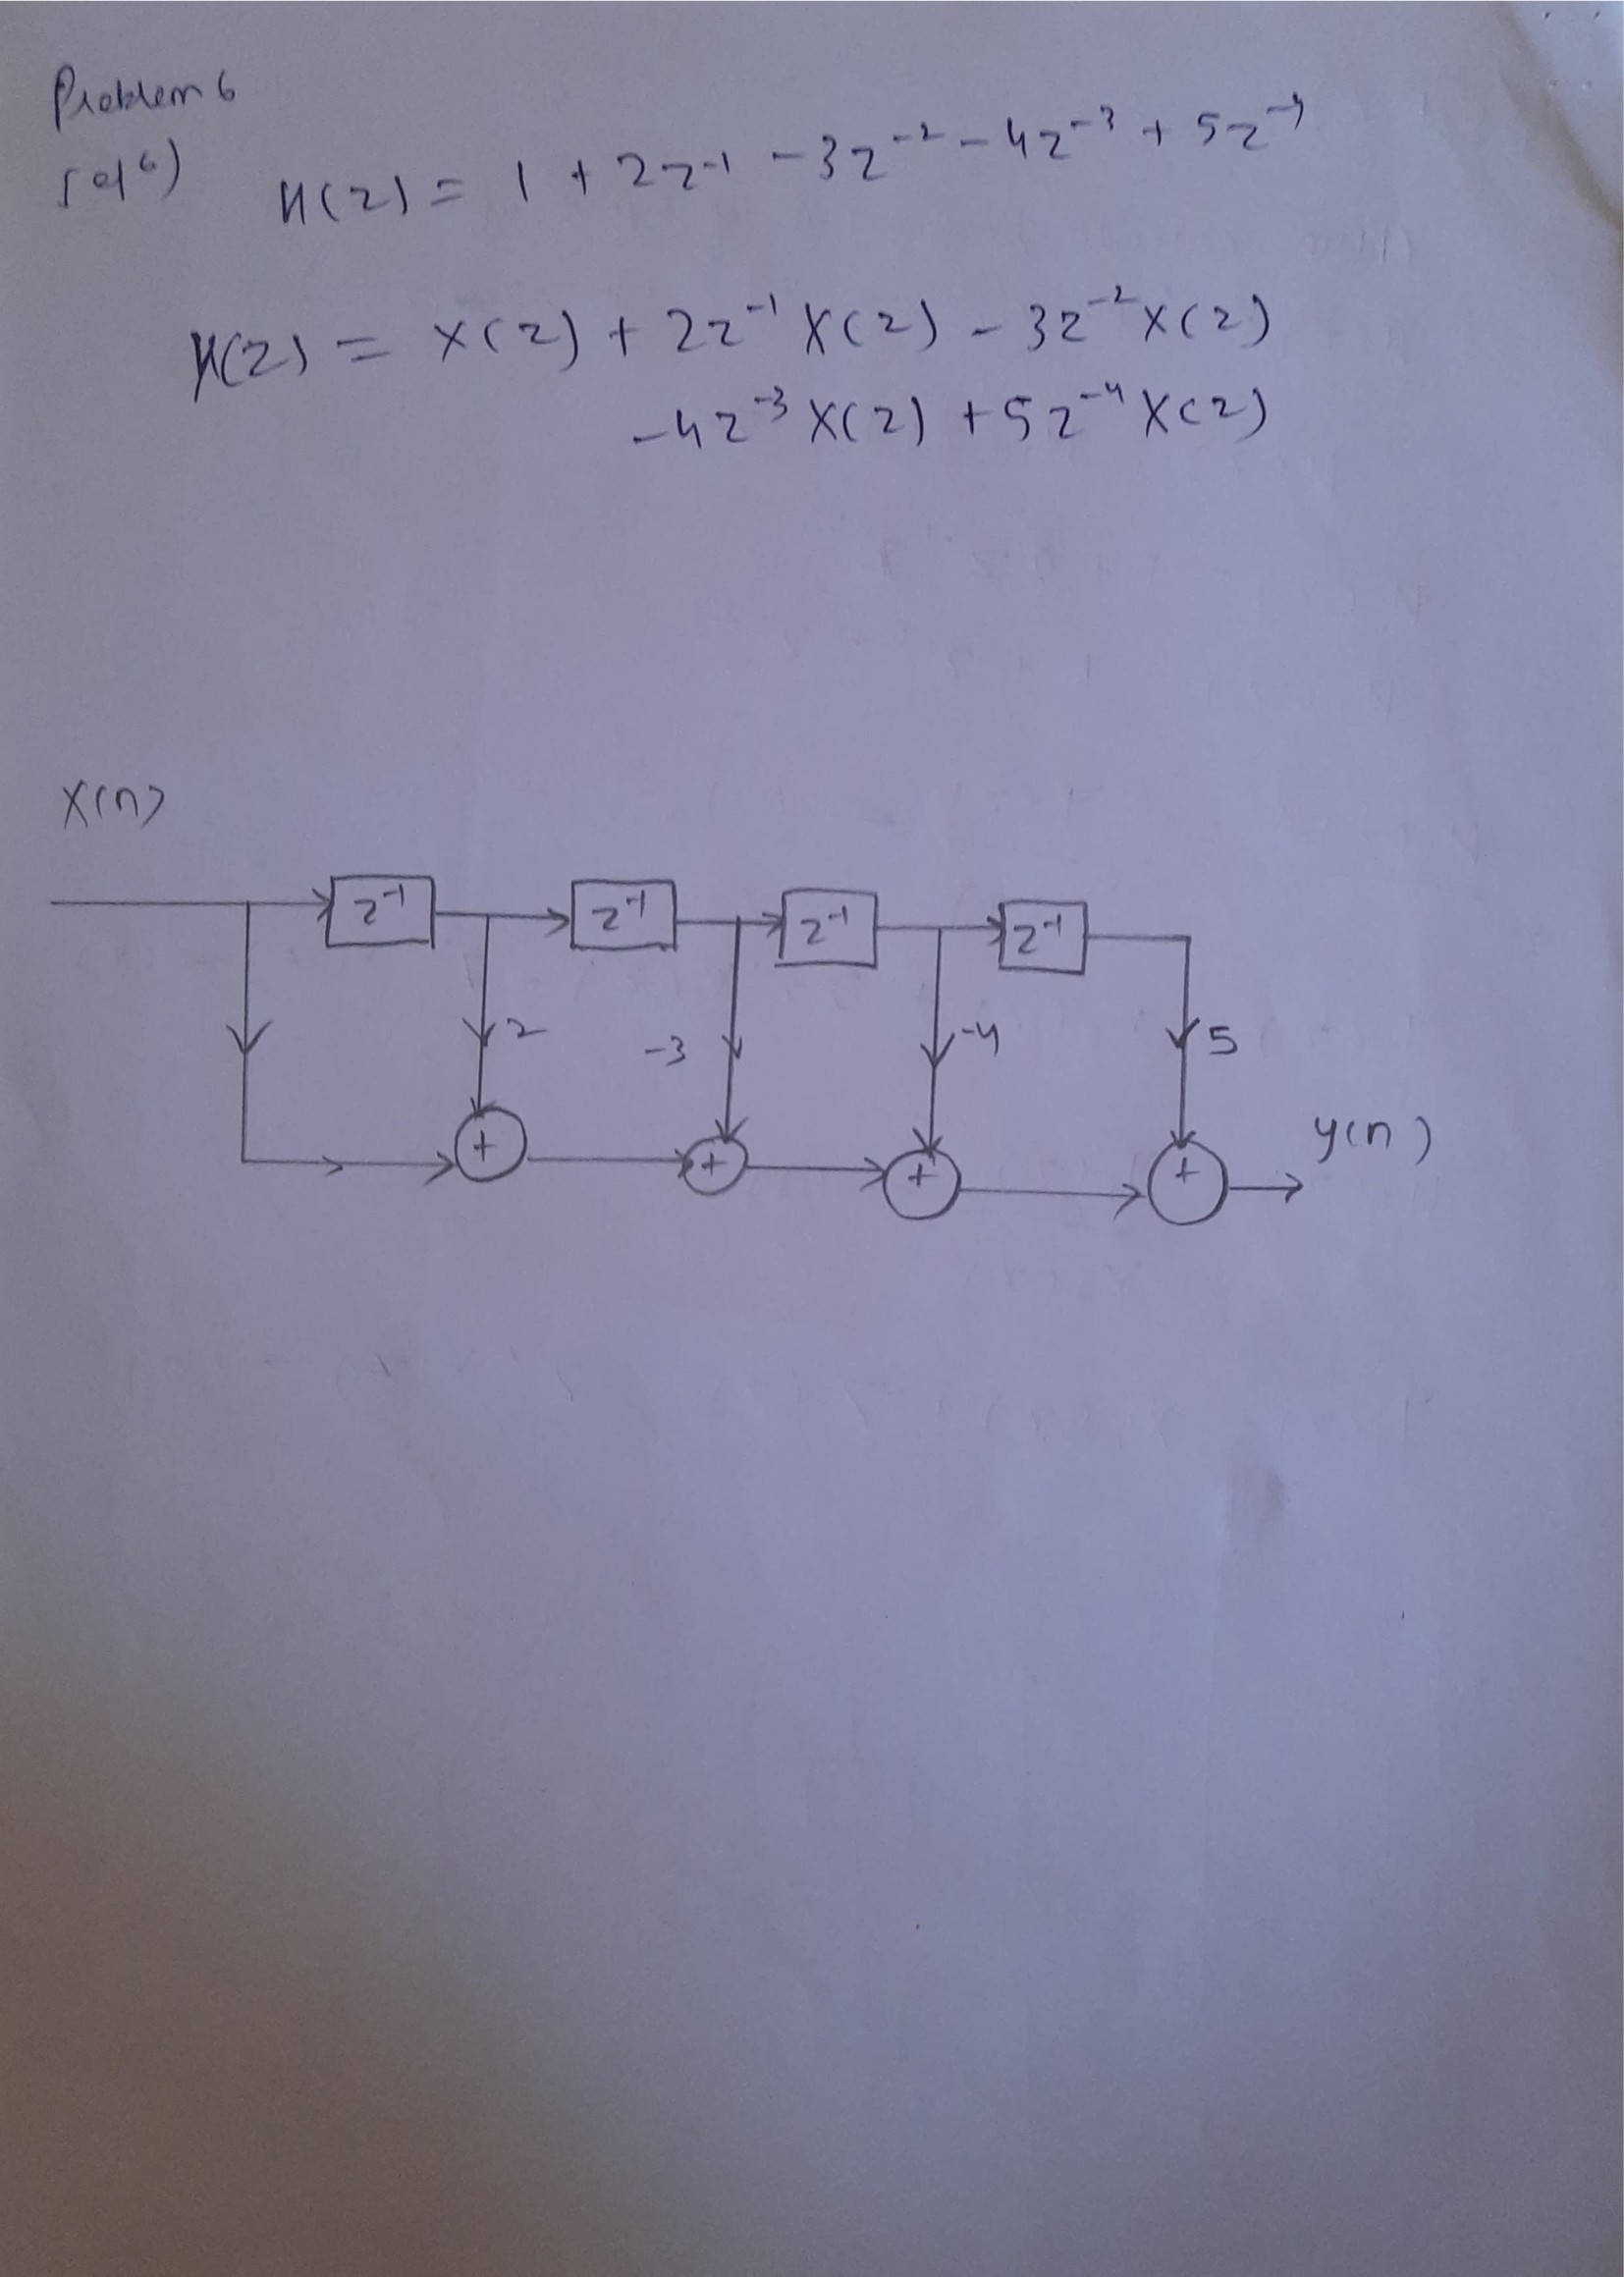 Problem 6
sol6) H(z) = 1 + 2z⁻¹ - 3z⁻² - 4z⁻³ + 5z⁻⁴
Y(z) = X(z) + 2z⁻¹ X(z) - 3z⁻² X(z)
-4z⁻³ X(z) + 5z⁻⁴ X(z)
X(n)
z⁻¹ z⁻¹ z⁻¹ z⁻¹
2 -3 -4 5
+ + + + y(n)